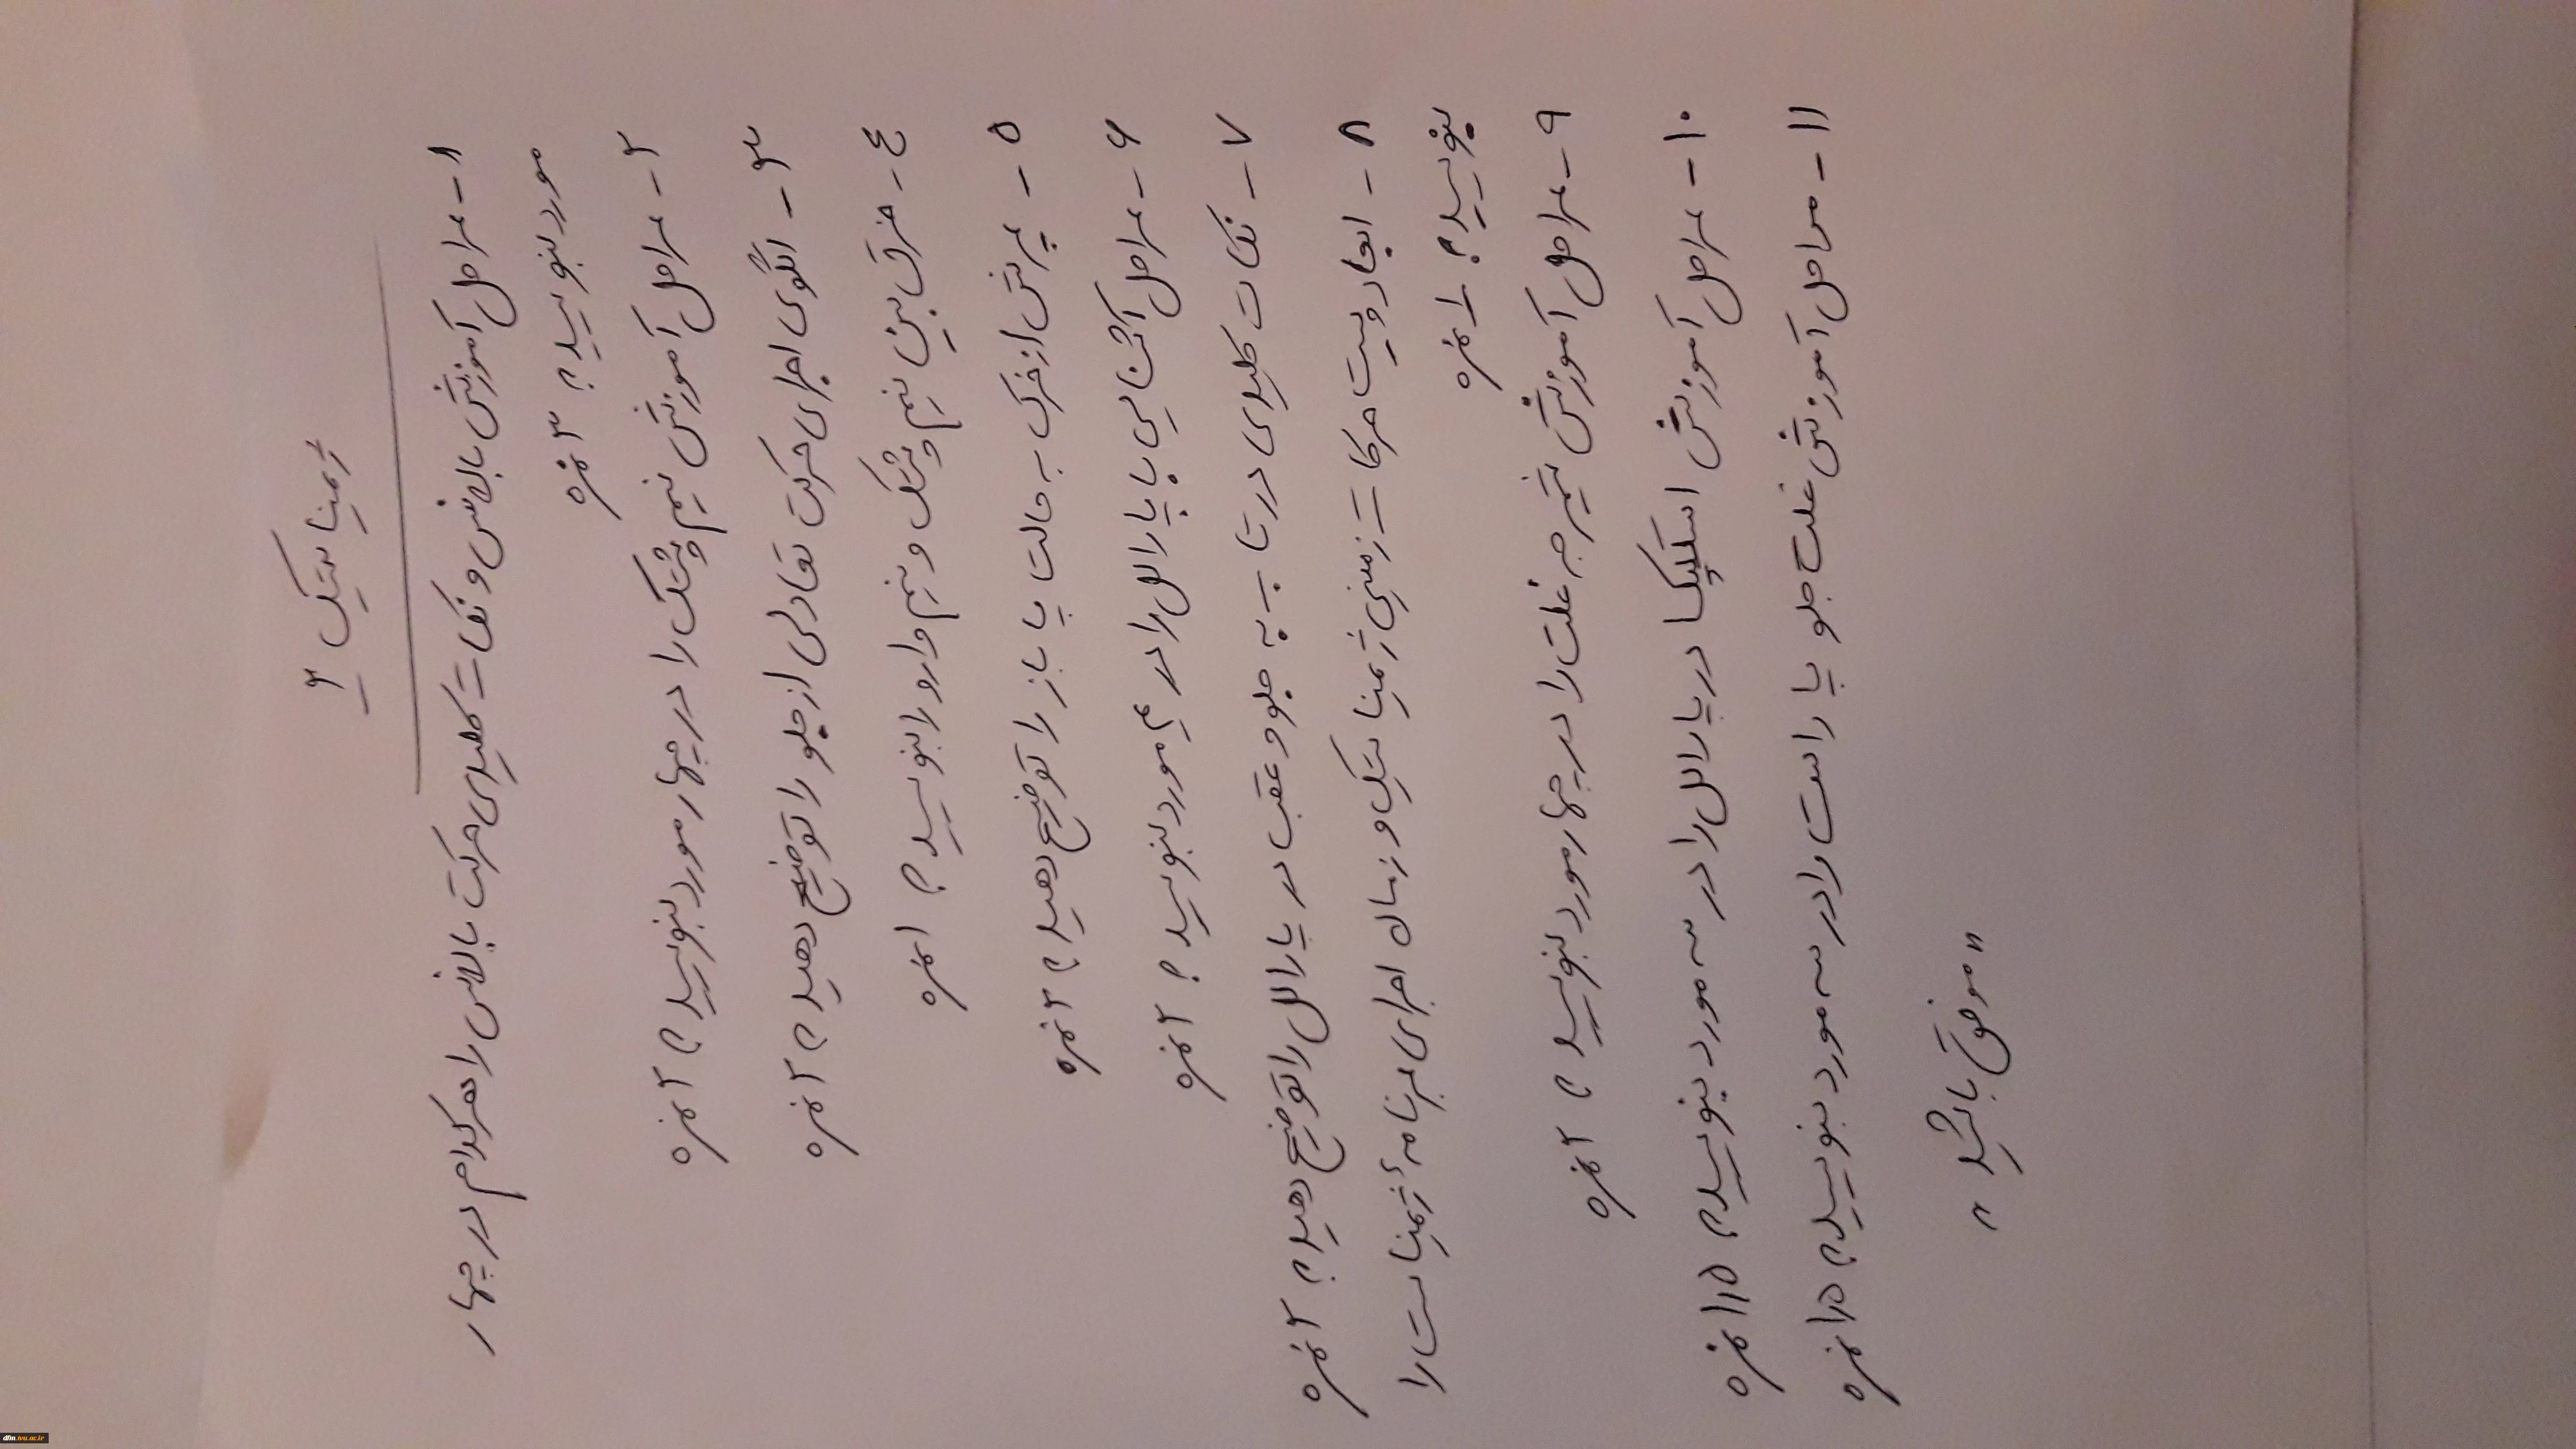 ژیمناستیک ۲
۱- مراحل آموزش بالانس و نکات کلیدی حرکت بالانس را هر کدام در چهار
مورد بنویسید؟ ۳ نمره
۲- مراحل آموزش نیم پشتک را در چهار مورد بنویسید؟ ۲ نمره
۳- الگوی اجرای حرکت تعادلی از جلو را توضیح دهید؟ ۲ نمره
۴- فرق بین نیم پشتک و نیم وارو را بنویسید؟ ۱ نمره
۵- پرش از خرک به حالت پا باز را توضیح دهید؟ ۲ نمره
۶- مراحل آشنایی با پارالل را در ۴ مورد بنویسید؟ ۲ نمره
۷- نکات کلیدی در تاب به جلو و عقب در پارالل را توضیح دهید؟ ۲ نمره
۸- ابعاد و پیست حرکات زمینی ژیمناستیک و زمان اجرای برنامه ژیمناست را
بنویسید؟ ۱ نمره
۹- مراحل آموزش شیرجه غلت را در چهار مورد بنویسید؟ ۲ نمره
۱۰- مراحل آموزش استکپکا در پارالل را در سه مورد بنویسید؟ ۱/۵ نمره
۱۱- مراحل آموزش غلت جلو پا راست را در سه مورد بنویسید؟ ۱/۵ نمره
"موفق باشید"
dfm.tvu.ac.ir